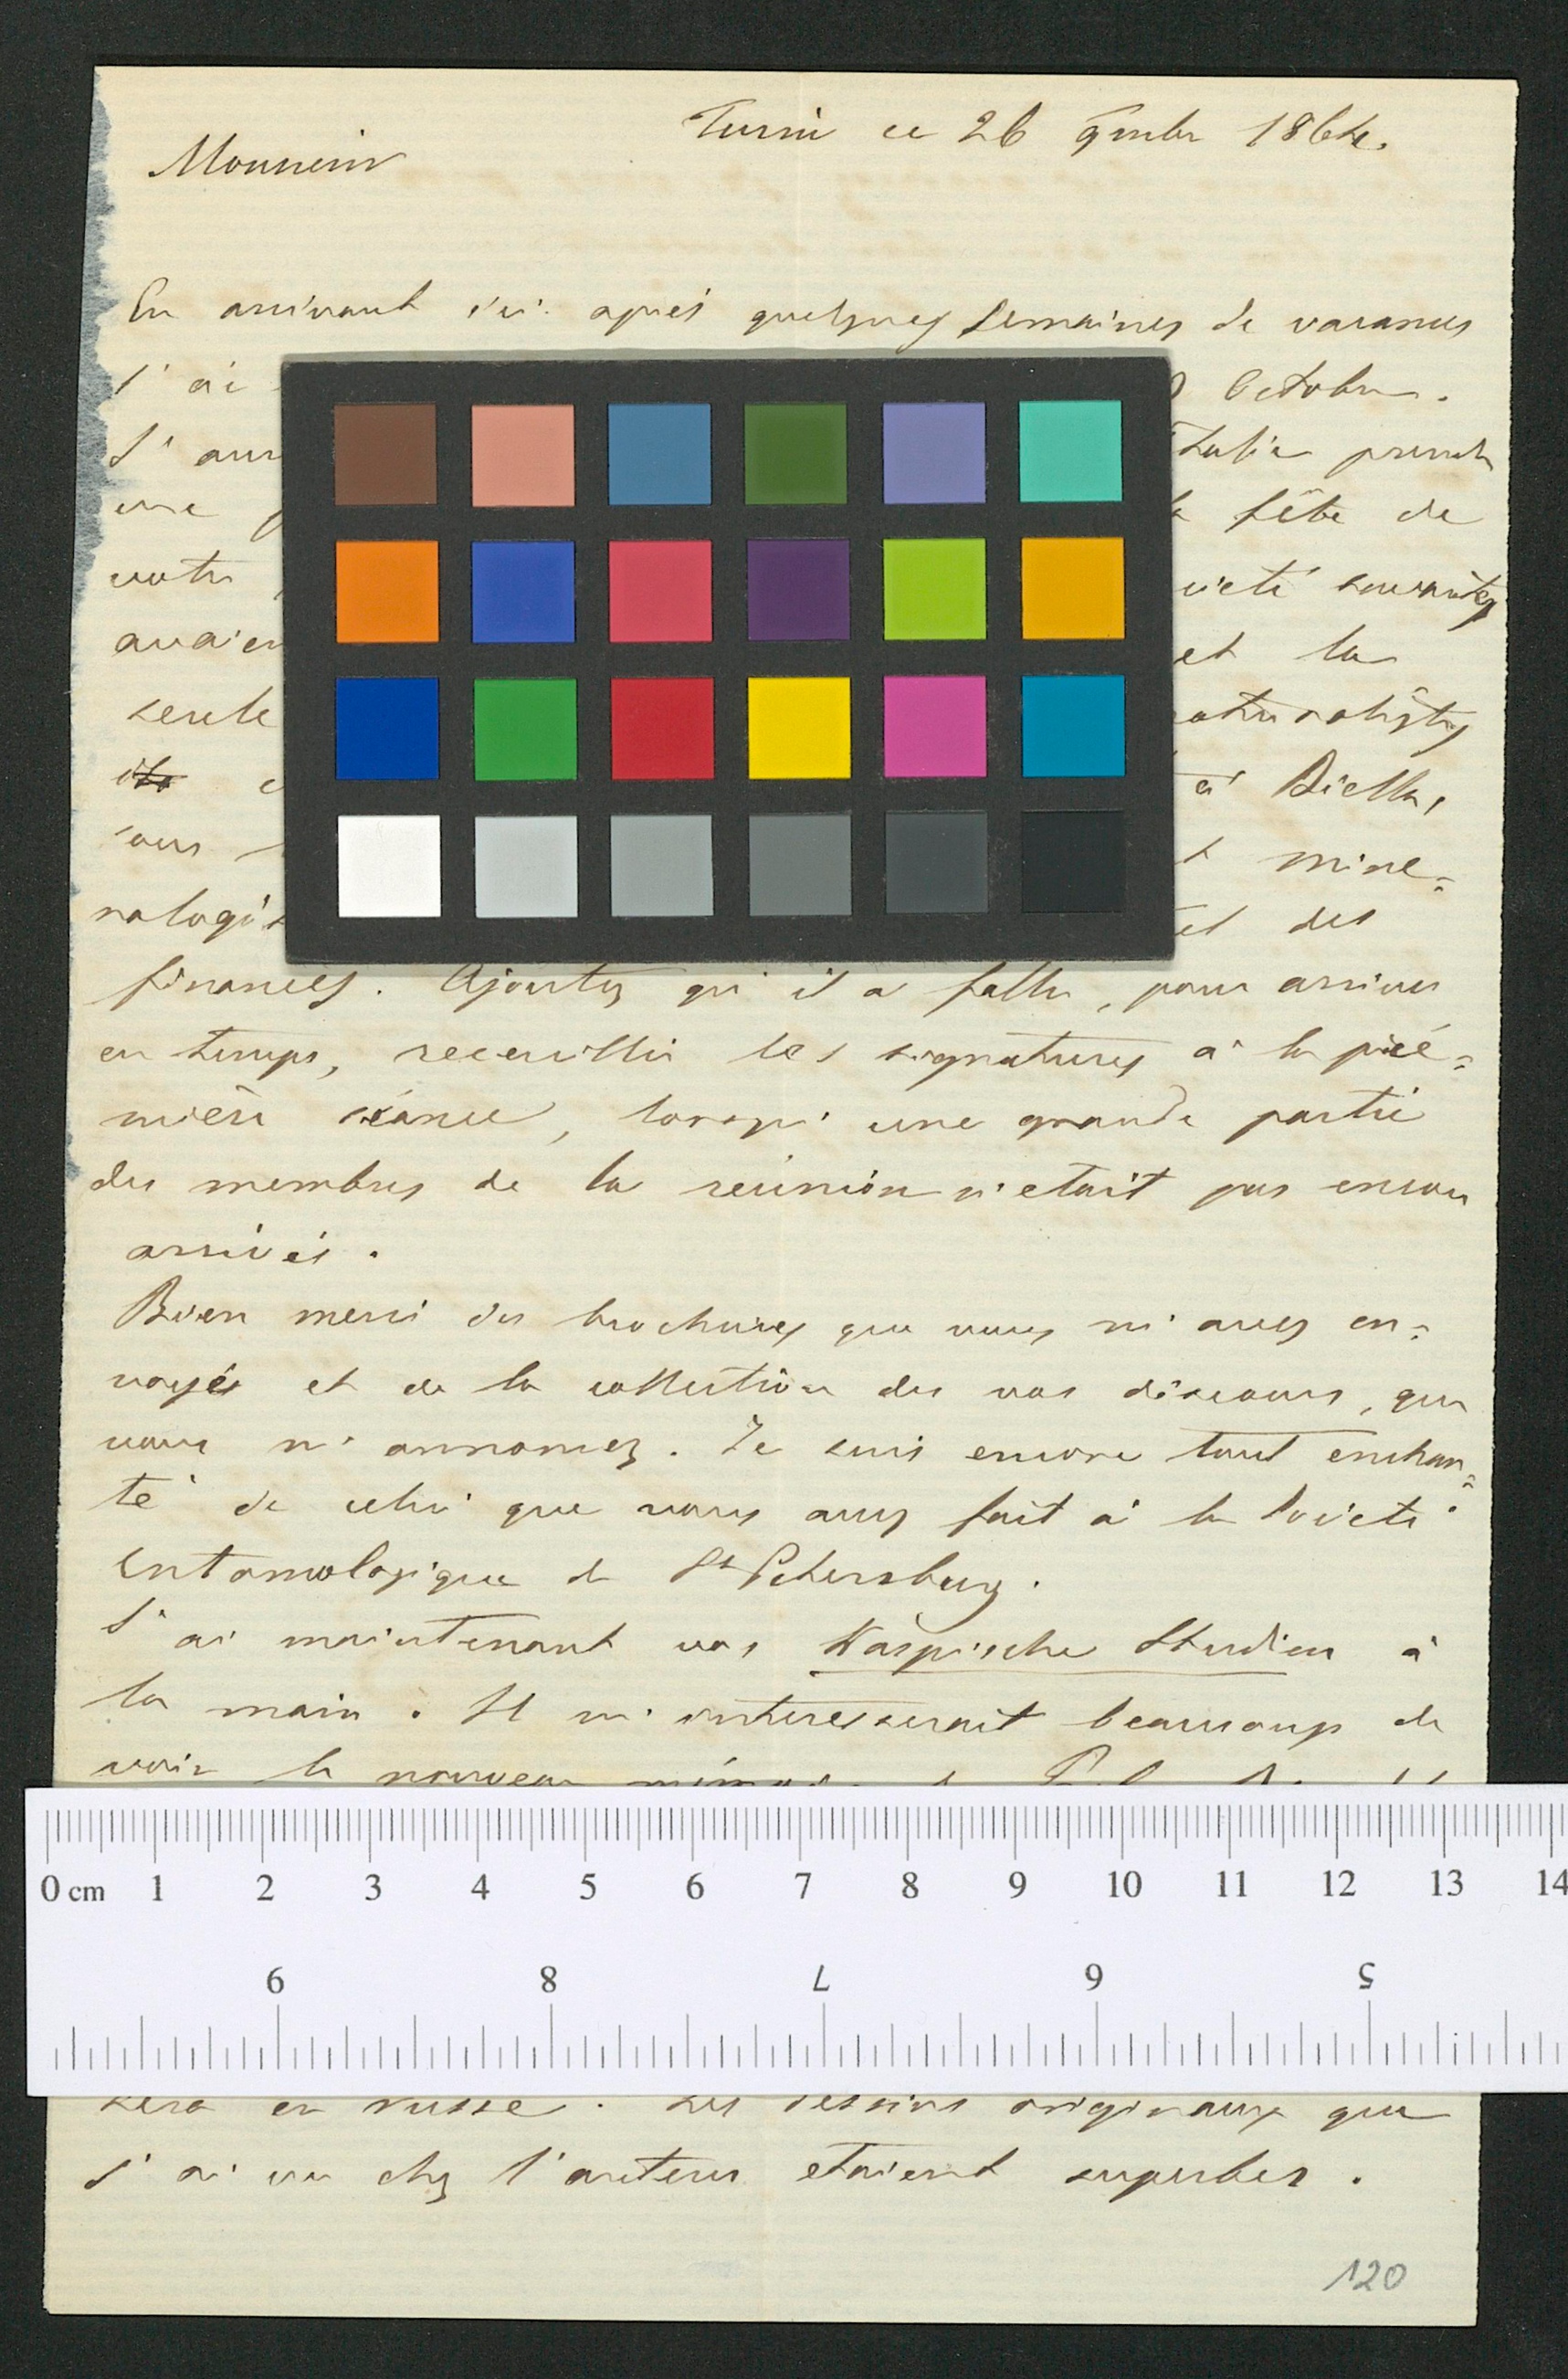 Turin ce 26 9mbre 1864.
Monsieur
En arrivant ici après quelques semaines de vacances
J'ai Octobre.
J'aur Italie prendre
une fête de
votre savantes
avaien et la
seule naturalistes
à Biella,
sous mine=
ralogis et des
finances. Ajoutez qu'il a fallu, pour arriver
en temps, recueillir les signatures à la pre=
mière séance, lorsqu'une grande partie
des membres de la reunion n'etait pas encore
arrivés.
Bien merci des brochures que vous m'avez en=
voyés et de la collection des vos discours, que
vous m'annoncez. Je suis encore tout enchan=
té de celui que vous avez fait à la Societé
entomologique de St Petersburg.
J'ai maintenant vos Kaspische Studien à
la main. Il m'interesserait beaucoup de
voir le nouveau
0 cm 1 2 3 4 5 6 7 8 9 10 11 12 13 14
9 8 7 6 5
sera en russe. Les dessins originaux que
j'ai vu chez l'auteur etaient superbes.
120